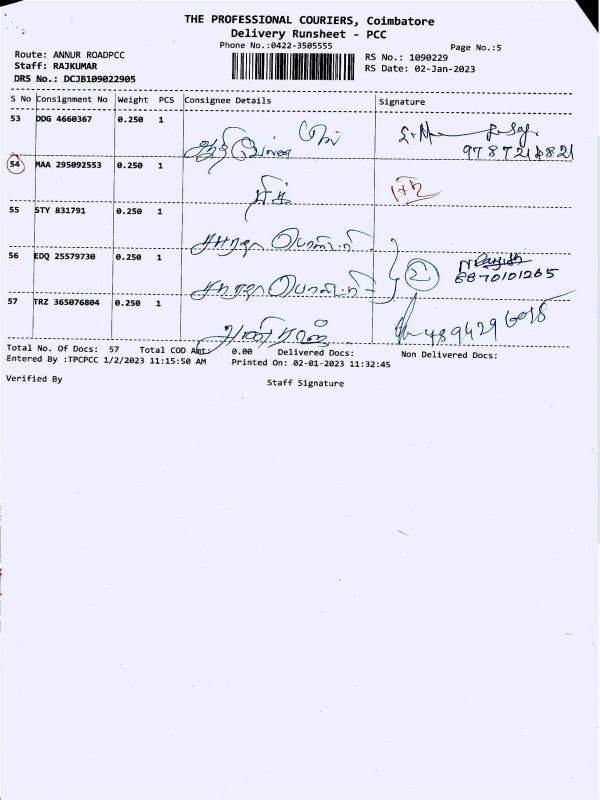 THE PROFESSIONAL COURIERS, Coimbatore
Delivery Runsheet - PCC
Phone No.:0422-3505555
Page No.:5
Route: ANNUR ROADPCC
RS No.: 1090229
Staff: RAJKUMAR
RS Date: 02-Jan-2023
DRS No.: DCJB109022905
S No Consignment No Weight PCS Consignee Details Signature
53 DDG 4660367 0.250 1
9787218821
54 MAA 295092553 0.250 1
1+2
55 STY 831791 0.250 1
சாரதா
56 EDQ 25579730 0.250 1
சாரதா
2
6870101265
57 TRZ 365076804 0.250 1
Total No. Of Docs: 57 Total COD Amt: 0.00 Delivered Docs: Non Delivered Docs:
Entered By :TPCPCC 1/2/2023 11:15:50 AM Printed On: 02-01-2023 11:32:45
Verified By
Staff Signature